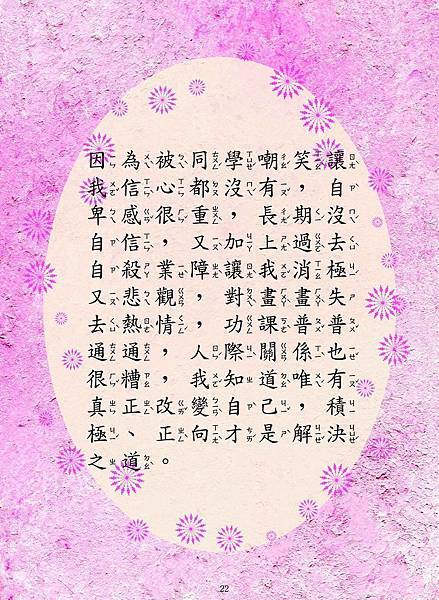 因為被同學嘲笑,讓
我信心都沒有,自
卑感很重,長期沒
自信,又加上過去
自殺業障讓我消極
又悲觀,對畫畫失
去熱情,功課普普
通通,人際關係也
很糟,我知道唯有
真正改變自己,積
極、正向才是解決
之道。
22